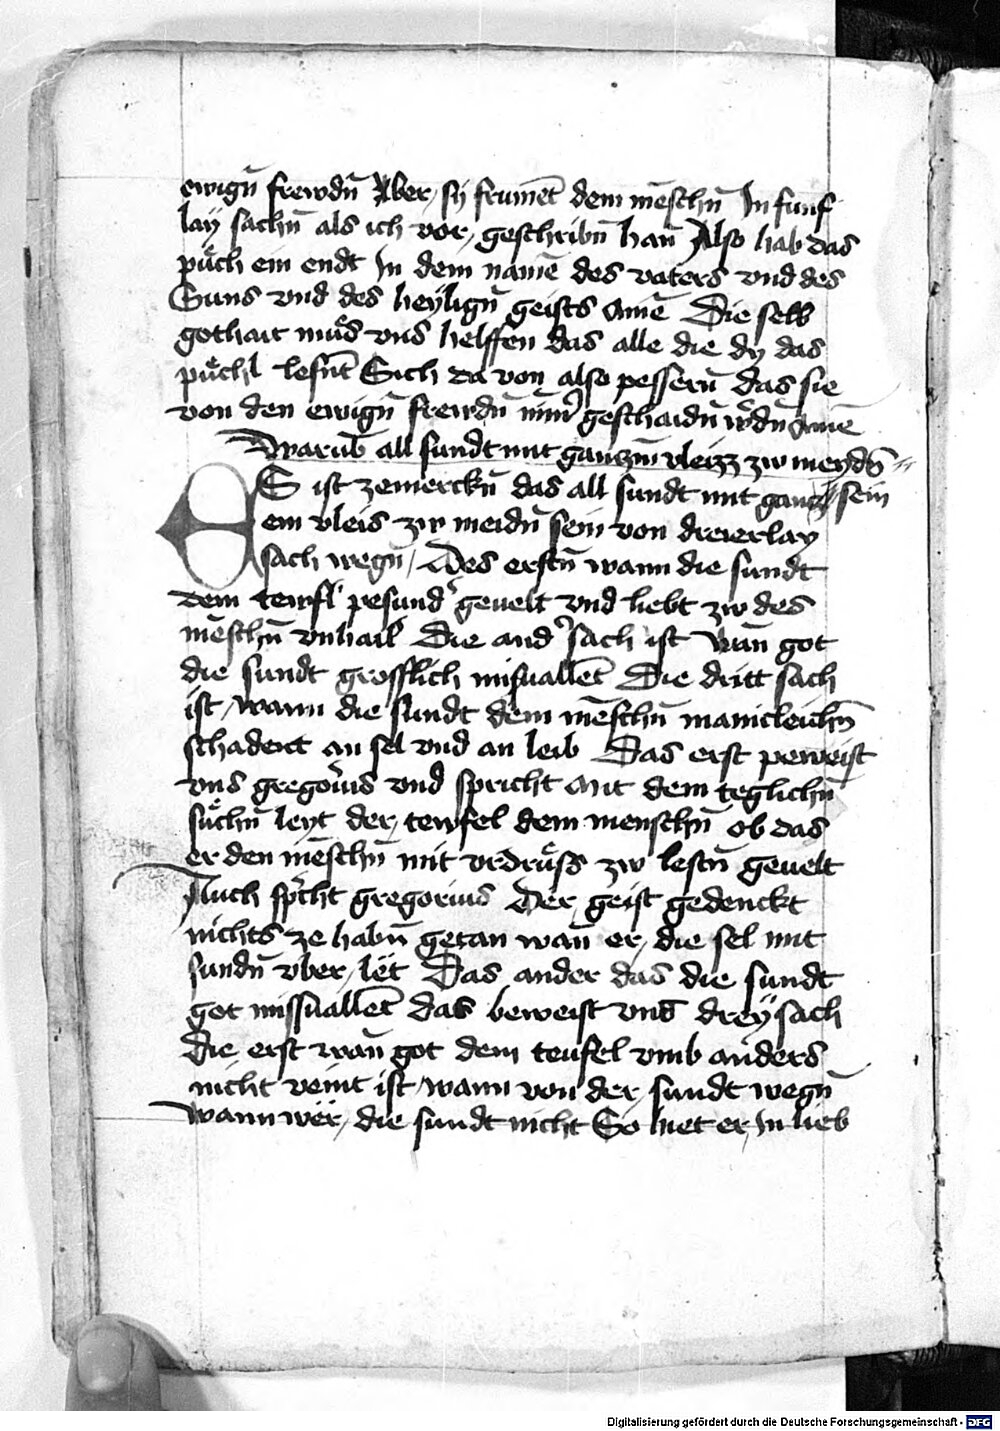 ewigñ frewdñ Aber sy frumēt dem mēschñ In funf
lay sachñ als ich vor geschribñ hañ Also hab das
půch ein endt In dem namē des vaters vnd des
Suns vnd des heyligñ geists Amē Die selb
gothait můs vns helffen das alle die dy das
půchl lesñt Sich da von also pesserñ das sie
von den ewigñ frewdñ geschaidñ Amē
Warūb all sundt mit gantzm vleizz zw meydñ
ES ist zemerckñ das all sundt mit gantz sein
em vleis zw meidñ sein von dreierlay
sach wegñ Des erstñ wann die sundt
dem tewfl pesund geuelt vnd liebt zw des
mēschñ vnhail Die and sach ist Wañ got
die sundt grossflich misuallet Die dritt sach
ist wann die sundt dem mēschñ
schadent an sel vnd an leib Das erst peweist
vns gregorius vnd spricht Mit dem teglichñ
sůchñ leyt der tewfel dem menschñ ob das
er den mēschñ mit vrdrůss zw lestñ geuelt
Auch spricht gregorius Der geist gedenckt
nichts ze habñ getan wañ er die sel mit
sundñ vber lët Das ander das die sundt
got missuallet das beweist vns dreÿ sach
Die erst wañ got dem teufel vmb anders
nicht veint ist wann von der sundt wegñ
Wann wër die sundt nicht So hiet er In lieb
Digitalisierung gefördert durch die Deutsche Forschungsgemeinschaft - DFG